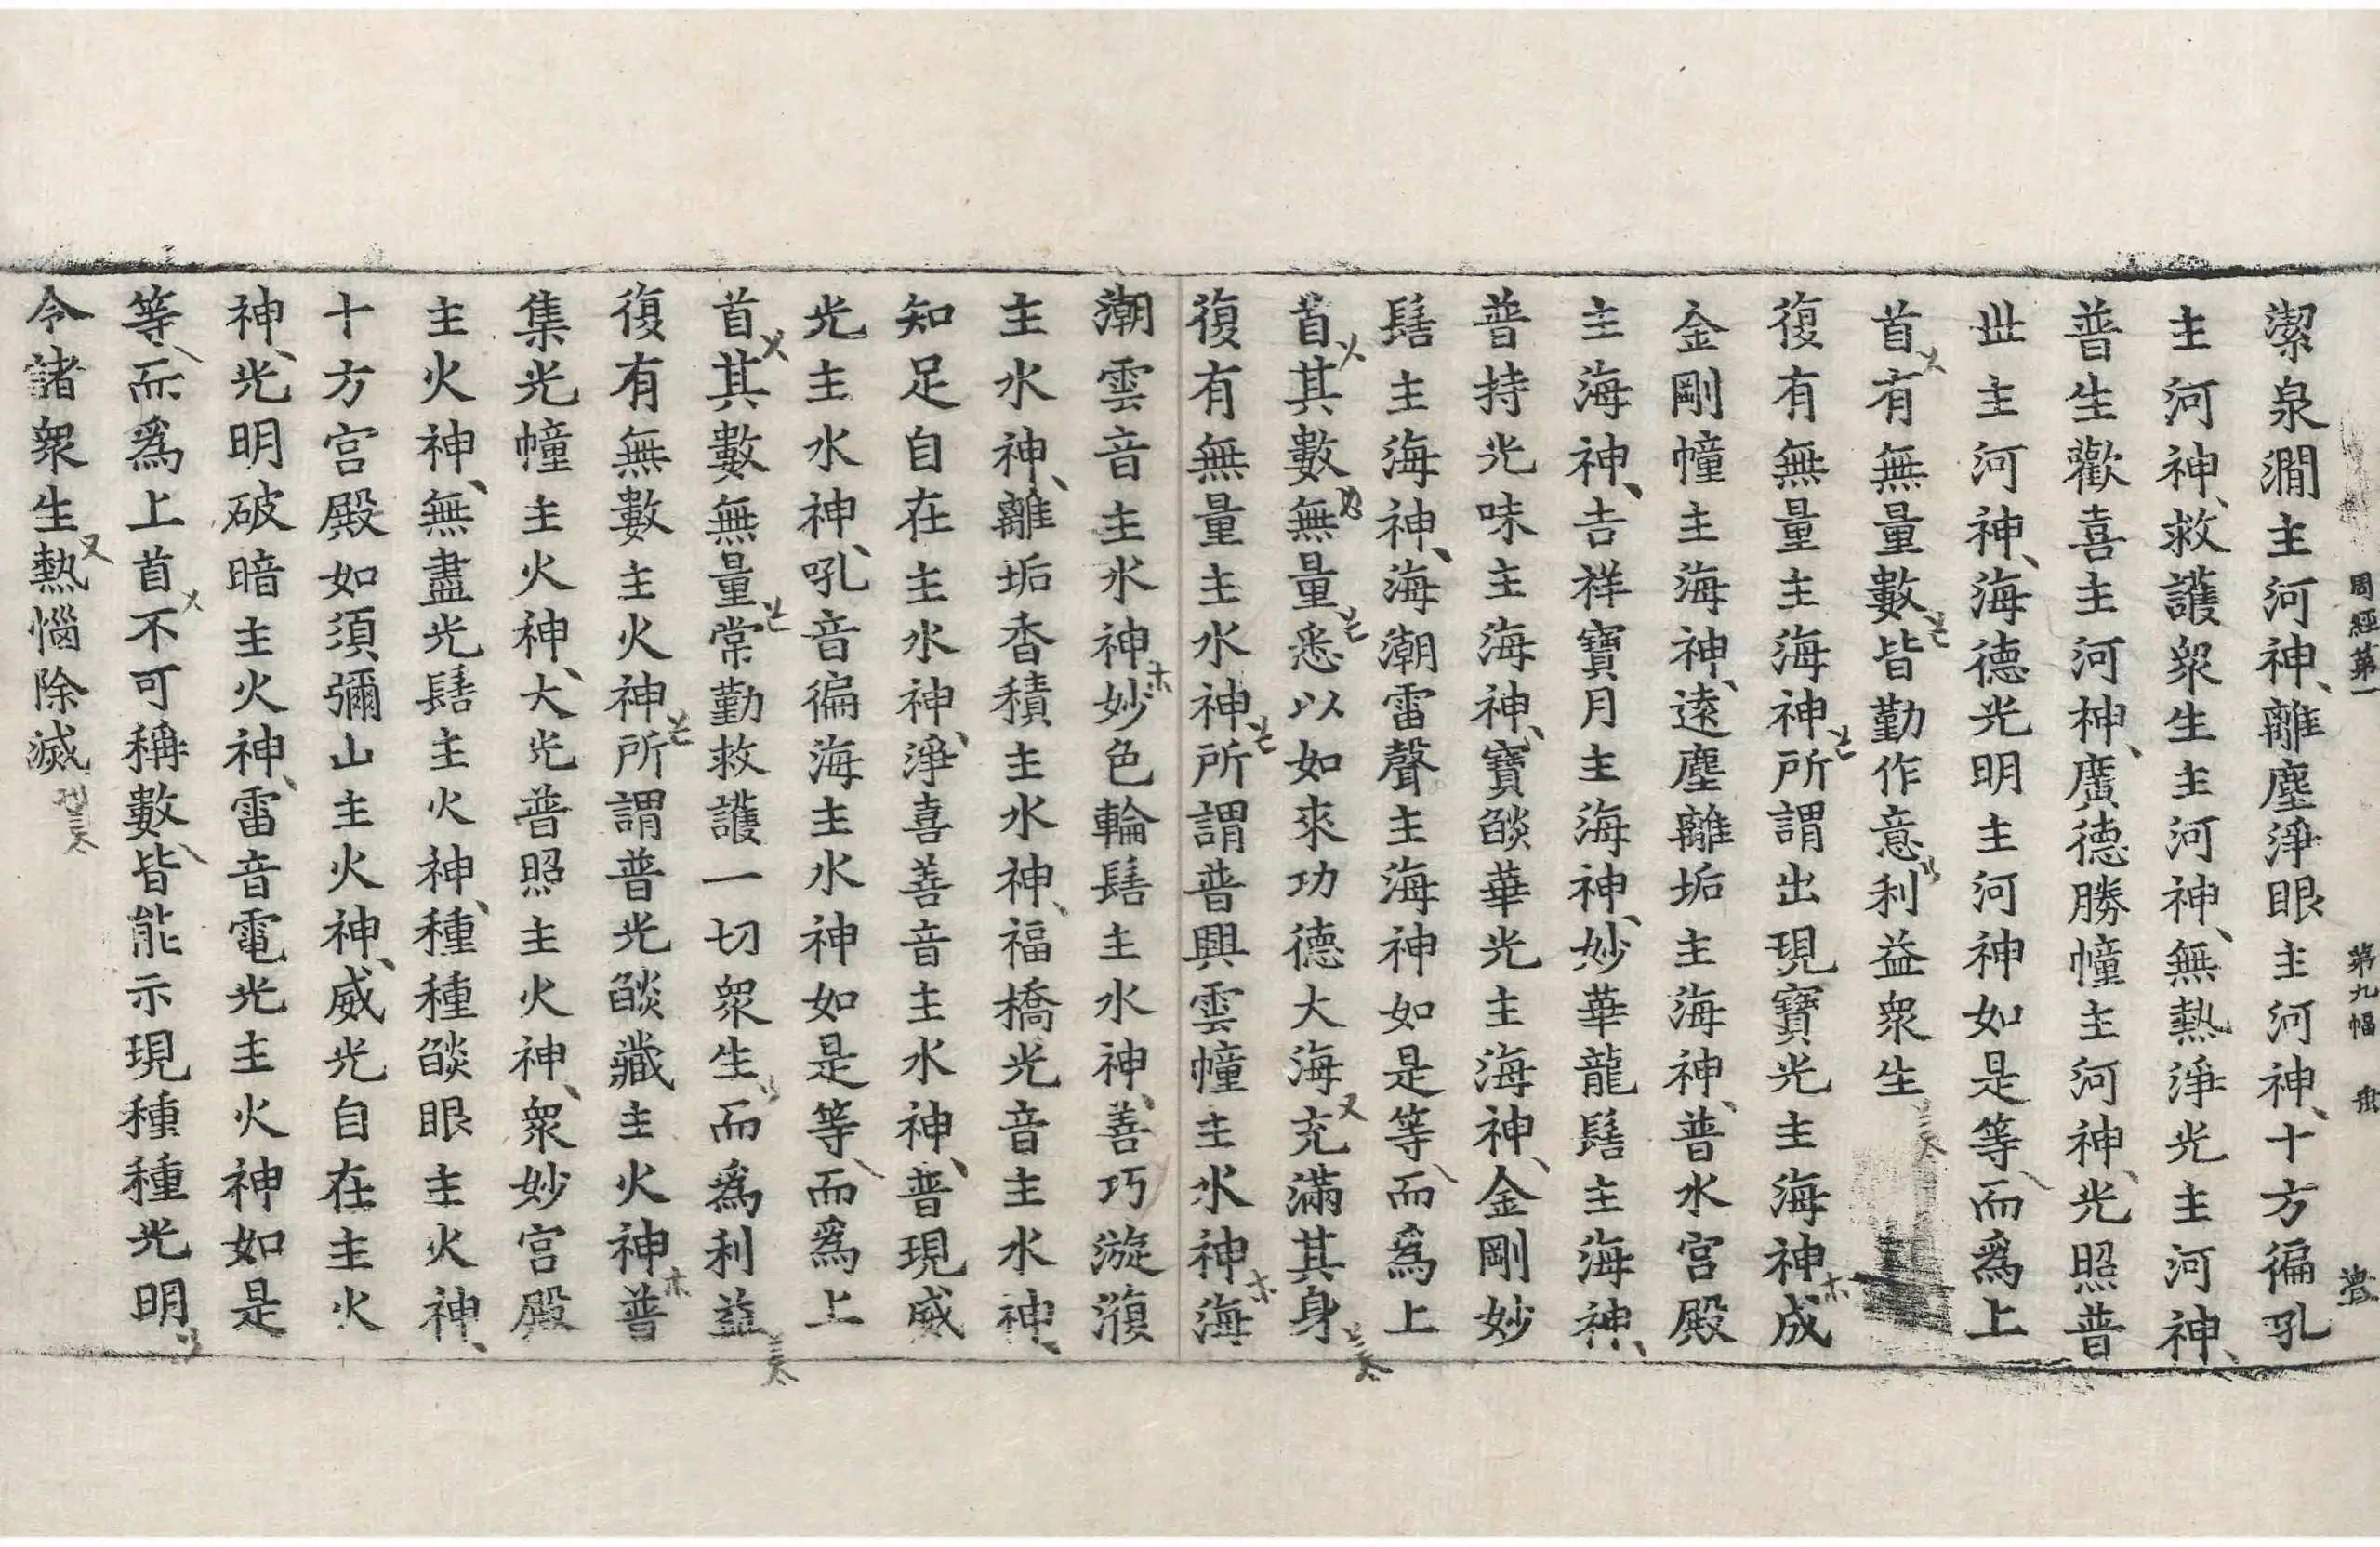 周經第一 第九幅
潔泉澗主河神離塵淨眼主河神十方徧吼
主河神救護衆生主河神無熱淨光主河神
普生歡喜主河神廣德勝幢主河神光照普
世主河神海德光明主河神如是等而爲上
首有無量數皆勤作意利益衆生
復有無量主海神所謂出現寶光主海神成
金剛幢主海神遠塵離垢主海神普水宮殿
主海神吉祥寶月主海神妙華龍髻主海神
普持光味主海神寶燄華光主海神金剛妙
髻主海神海潮雷聲主海神如是等而爲上
首其數無量悉以如來功德大海充滿其身
復有無量主水神所謂普興雲幢主水神海
潮雲音主水神妙色輪髻主水神善巧漩澓
主水神離垢香積主水神福橋光音主水神
知足自在主水神淨喜善音主水神普現威
光主水神吼音徧海主水神如是等而爲上
首其數無量常勤救護一切衆生而爲利益
復有無數主火神所謂普光燄藏主火神普
集光幢主火神大光普照主火神衆妙宮殿
主火神無盡光髻主火神種種燄眼主火神
十方宮殿如須彌山主火神威光自在主火
神光明破暗主火神雷音電光主火神如是
等而爲上首不可稱數皆能示現種種光明
令諸衆生熱惱除滅